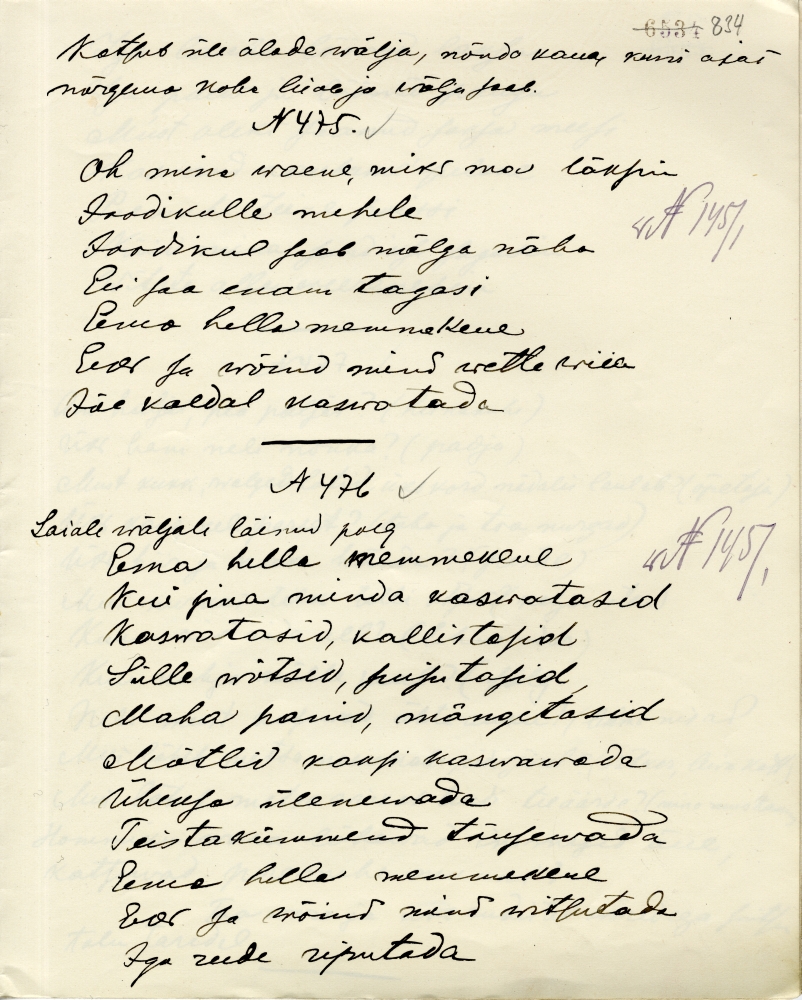 6534 834
Katsub üle älade wälja, nõnda kaua, kuni ajas
nõrgema koha leiab ja wälja saab.
N 475. ✓
Oh mina waene, miks ma läksin
Joodikulle mehele
Joodikul saab nälga näha
Ei saa enam tagasi
Eema hella memmekene
Ees sa wõind mind wette wiia
Jõe kaldal kaswatada
N 1457,
N 476 ✓
Laiale wäljale läinud poeg
Eema hella memmekene
Kui sina minda kaswatasid
Kaswatasid, kallistasid
Sülle wõtsid, suisutasid,
Maha panid, mängitasid
Mõtlid kaksi kaswawada
Üheksa ülenewada
Teistakümmend tõusewada
Eema hella memmekene
Ees sa wõind mind witsutada
Iga reede riputada
N 1457,